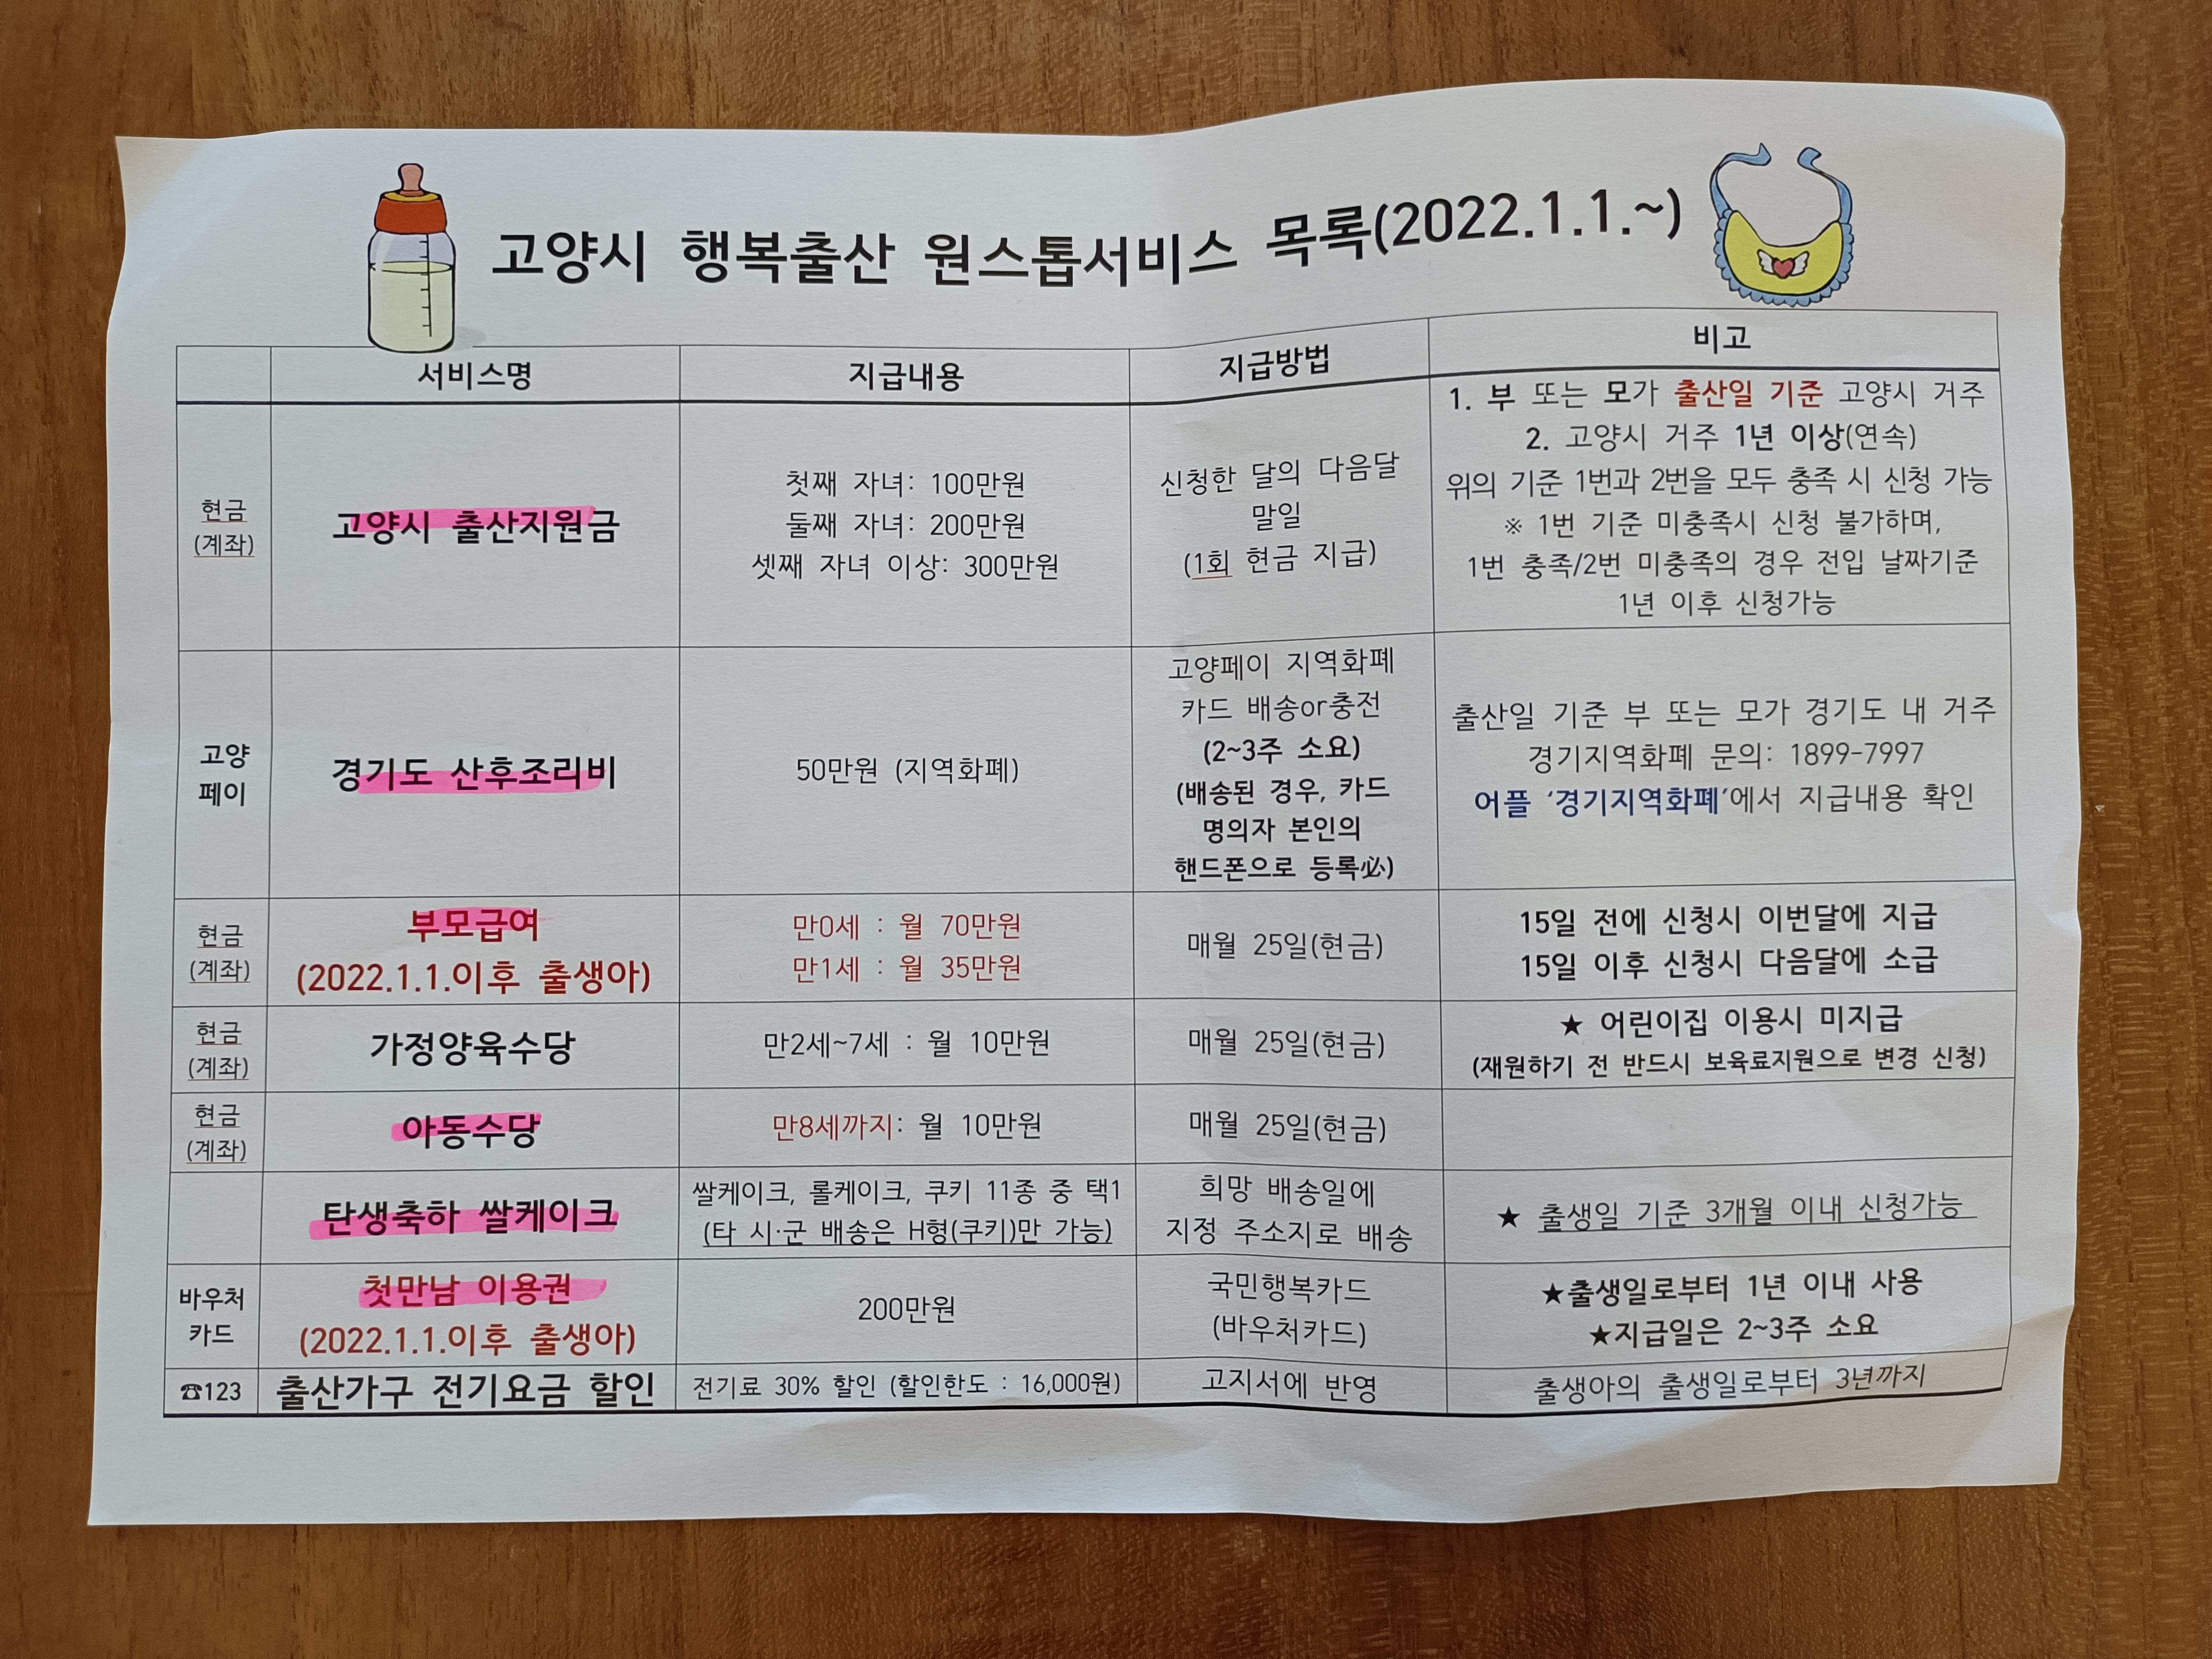 고양시 행복출산 원스톱서비스 목록(2022.1.1.~)
서비스명
지급내용
지급방법
비고
현금
(계좌)
고양시 출산지원금
첫째 자녀: 100만원
둘째 자녀: 200만원
셋째 자녀 이상: 300만원
신청한 달의 다음달
말일
(1회 현금 지급)
1. 부 또는 모가 출산일 기준 고양시 거주
2. 고양시 거주 1년 이상(연속)
위의 기준 1번과 2번을 모두 충족 시 신청 가능
※ 1번 기준 미충족시 신청 불가하며,
1번 충족/2번 미충족의 경우 전입 날짜기준
1년 이후 신청가능
고양
페이
경기도 산후조리비
50만원 (지역화폐)
고양페이 지역화폐
카드 배송or충전
(2~3주 소요)
(배송된 경우, 카드
명의자 본인의
핸드폰으로 등록必)
출산일 기준 부 또는 모가 경기도 내 거주
경기지역화폐 문의: 1899-7997
어플 '경기지역화폐'에서 지급내용 확인
현금
(계좌)
부모급여
(2022.1.1.이후 출생아)
만0세 : 월 70만원
만1세 : 월 35만원
매월 25일(현금)
15일 전에 신청시 이번달에 지급
15일 이후 신청시 다음달에 소급
현금
(계좌)
가정양육수당
만2세~7세 : 월 10만원
매월 25일(현금)
★ 어린이집 이용시 미지급
(재원하기 전 반드시 보육료지원으로 변경 신청)
현금
(계좌)
아동수당
만8세까지: 월 10만원
매월 25일(현금)
탄생축하 쌀케이크
쌀케이크, 롤케이크, 쿠키 11종 중 택1
(타 시·군 배송은 H형(쿠키)만 가능)
희망 배송일에
지정 주소지로 배송
★ 출생일 기준 3개월 이내 신청가능
바우처
카드
첫만남 이용권
(2022.1.1.이후 출생아)
200만원
국민행복카드
(바우처카드)
★출생일로부터 1년 이내 사용
★지급일은 2~3주 소요
☎123
출산가구 전기요금 할인
전기료 30% 할인 (할인한도 : 16,000원)
고지서에 반영
출생아의 출생일로부터 3년까지